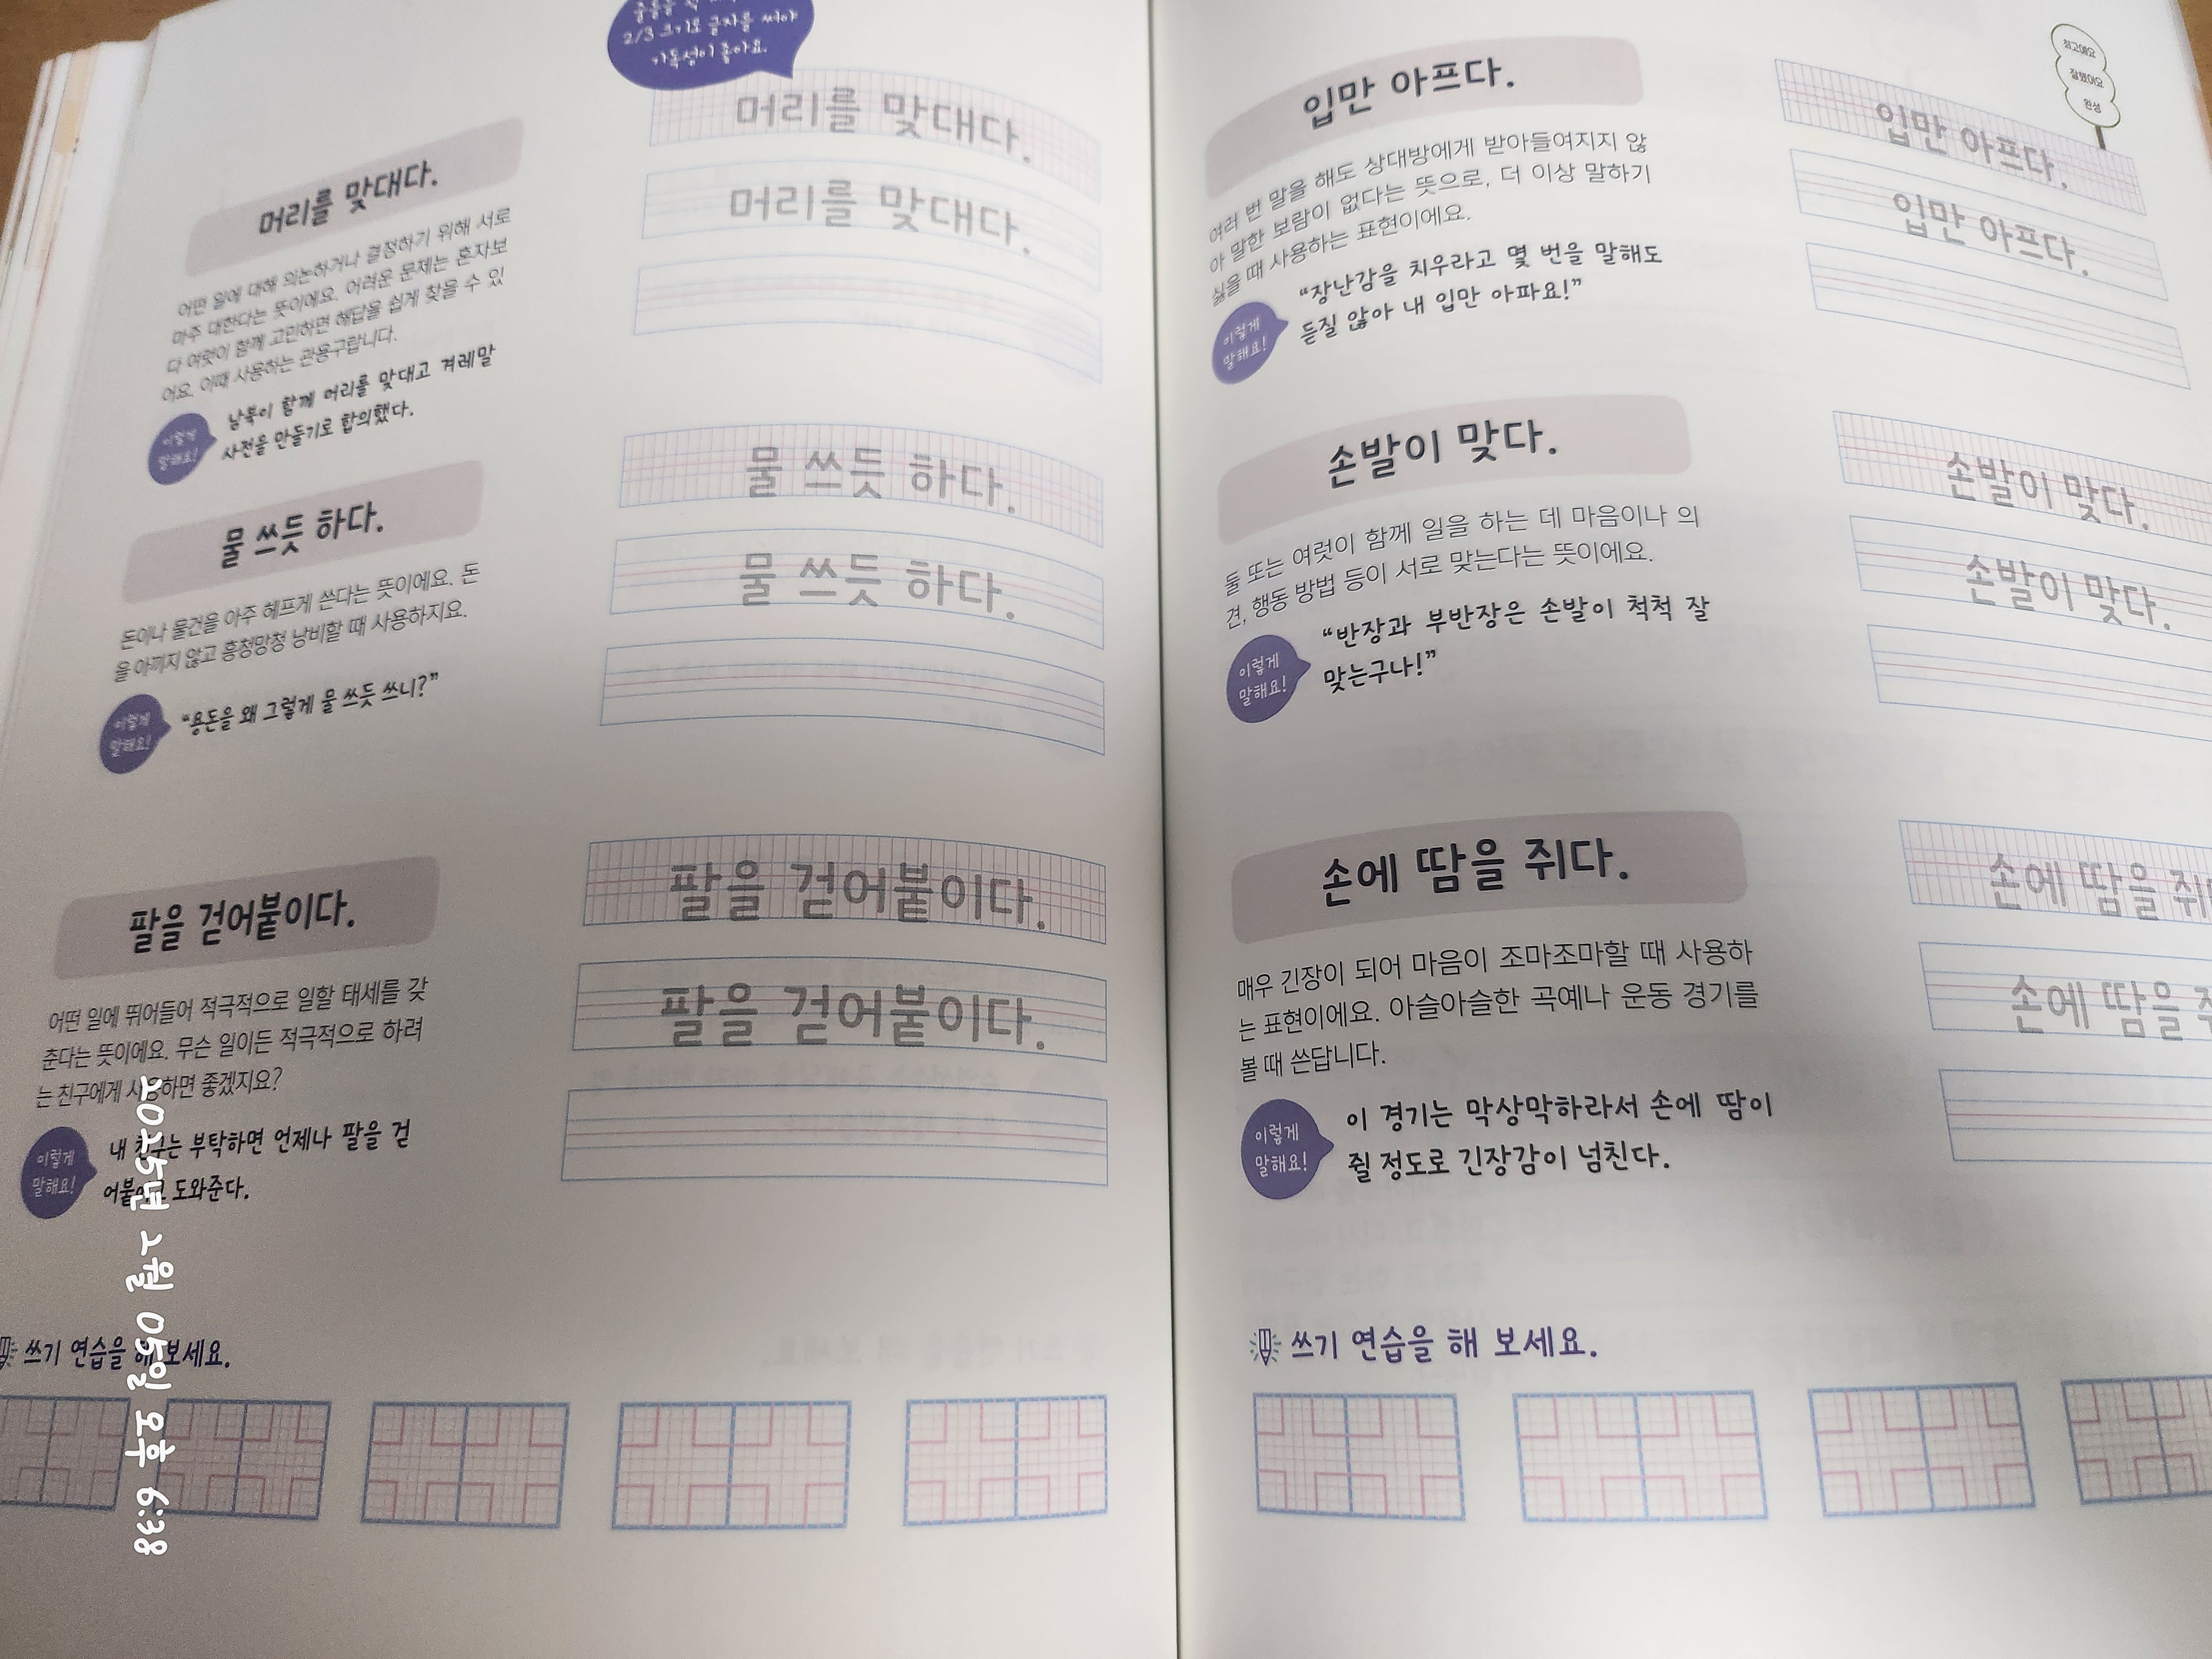 2/3 크기로 글자를 써야
가독성이 좋아요.
머리를 맞대다.
어떤 일에 대해 의논하거나 결정하기 위해 서로
마주 대한다는 뜻이에요. 어려운 문제는 혼자보
다 여럿이 함께 고민하면 해답을 쉽게 찾을 수 있
어요. 이때 사용하는 관용구랍니다.
이렇게
말해요!
남북이 함께 머리를 맞대고 겨레말
사전을 만들기로 합의했다.
머리를 맞대다.
머리를 맞대다.
물 쓰듯 하다.
돈이나 물건을 아주 헤프게 쓴다는 뜻이에요. 돈
을 아끼지 않고 흥청망청 낭비할 때 사용하지요.
이렇게
말해요!
“용돈을 왜 그렇게 물 쓰듯 쓰니?”
물 쓰듯 하다.
물 쓰듯 하다.
팔을 걷어붙이다.
어떤 일에 뛰어들어 적극적으로 일할 태세를 갖
춘다는 뜻이에요. 무슨 일이든 적극적으로 하려
는 친구에게 사용하면 좋겠지요?
이렇게
말해요!
내 친구는 부탁하면 언제나 팔을 걷
어붙이고 도와준다.
팔을 걷어붙이다.
팔을 걷어붙이다.
쓰기 연습을 해 보세요.
2025년 2월 05일 오후 6:38
최고예요
잘했어요
완성
입만 아프다.
여러 번 말을 해도 상대방에게 받아들여지지 않
아 말한 보람이 없다는 뜻으로, 더 이상 말하기
싫을 때 사용하는 표현이에요.
이렇게
말해요!
“장난감을 치우라고 몇 번을 말해도
듣질 않아 내 입만 아파요!”
입만 아프다.
입만 아프다.
손발이 맞다.
둘 또는 여럿이 함께 일을 하는 데 마음이나 의
견, 행동 방법 등이 서로 맞는다는 뜻이에요.
이렇게
말해요!
“반장과 부반장은 손발이 척척 잘
맞는구나!”
손발이 맞다.
손발이 맞다.
손에 땀을 쥐다.
매우 긴장이 되어 마음이 조마조마할 때 사용하
는 표현이에요. 아슬아슬한 곡예나 운동 경기를
볼 때 쓴답니다.
이렇게
말해요!
이 경기는 막상막하라서 손에 땀이
쥘 정도로 긴장감이 넘친다.
손에 땀을 쥐
손에 땀을
쓰기 연습을 해 보세요.